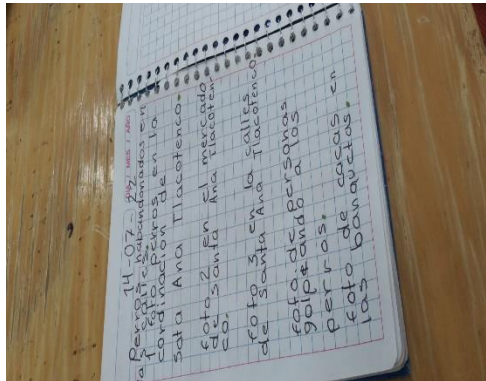 DIA / MES / AÑO
14-07-22
Perros habandonados en
as calles.
1 foto perros en la
cordinación de la
Sata Ana Tlacotenco.
foto 2 en el mercado
de santa Ana Tlacoten
co.
foto 3 en la calles
de Santa Ana Tlacotenco.
foto de personas
golpeando a los
perros.
foto de cacas en
las banquetas.